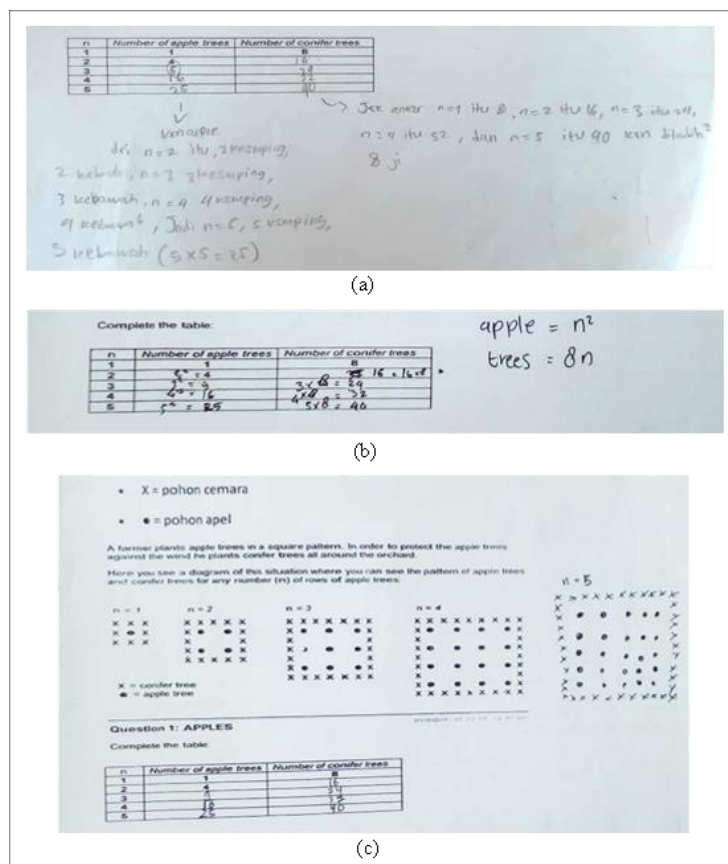 n Number of apple trees Number of conifer trees
1 1 8
2 4 16
3 9 24
4 16 32
5 25 40
Variasple
dri n=2 itu, 2 kesamping,
2 kebwh, n=3 3 kesamping,
3 kebawah, n=4 4 ksmping,
Jadi n=5, 5 ksmping,
5 kebawah (5x5=25)
n=1 itu 8, n=2 itu 16, n=3 itu 24,
n=4 itu 32, dan n=5 itu 40
8 ji
(a)
Complete the table:
apple = n²
trees = 8n
n Number of apple trees Number of conifer trees
1 1 8
2 = 4 16 = 16
3 = 9 3x8 = 24
4 4² = 16 4x8 = 32
5 5² = 25 5x8 = 40
(b)
• X = pohon cemara
• ● = pohon apel
A farmer plants apple trees in a square pattern. In order to protect the apple trees
against the wind he plants conifer trees all around the orchard.
Here you see a diagram of this situation where you can see the pattern of apple trees
and conifer trees for any number (n) of rows of apple trees:
n = 1 n = 2 n = 3 n = 4 n = 5
x = conifer tree
● = apple tree
Question 1: APPLES
Complete the table:
n Number of apple trees Number of conifer trees
1 1 8
2 4 16
3 9 24
4 16 32
5 25 40
(c)